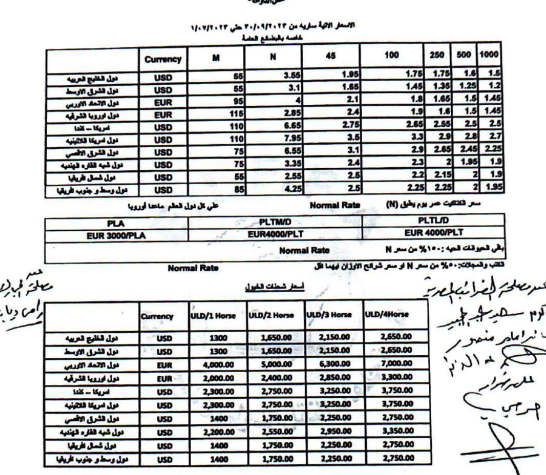 الاسعار الاتية ساريه من ٣٠/٠٩/٢٠٢٣ حتي ١/٠٧/٢٠٢٣
خاصه بالبضائع العامة
Currency M N 45 100 250 500 1000
دول الخليج العربيه USD 55 3.55 1.95 1.75 1.75 1.6 1.5
دول الشرق الاوسط USD 55 3.1 1.65 1.45 1.35 1.25 1.2
دول الاتحاد الاوربي EUR 95 4 2.1 1.8 1.65 1.5 1.45
دول اوروبا الشرقيه EUR 115 2.85 2.4 1.9 1.6 1.5 1.45
امريكا – كندا USD 110 6.65 2.75 2.65 2.55 2.5 2.5
دول امريكا اللاتينيه USD 110 7.95 3.5 3.3 2.9 2.8 2.7
دول الشرق الاقصي USD 75 6.55 3.1 2.9 2.65 2.45 2.25
دول شبه القاره الهنديه USD 75 3.35 2.4 2.3 2 1.95 1.9
دول شمال افريقيا USD 55 2.55 2.5 2.2 2.15 2 1.9
دول وسط و جنوب افريقيا USD 85 4.25 2.5 2.25 2.25 2 1.95
سعر الكتاكيت عمر يوم يطبق (N) Normal Rate علي كل دول العالم ماعدا أوروبا
PLA PLTM/D PLTL/D
EUR 3000/PLA EUR4000/PLT EUR 4000/PLT
باقي الحيوانات الحيه :١٥٠% من سعر N Normal Rate
الكتب والمجلات:٥٠% من سعر N او سعر شرائح الاوزان ايهما اقل Normal Rate
أسعار شحنات الخيول
Currency ULD/1 Horse ULD/2 Horse ULD/3 Horse ULD/4Horse
دول الخليج العربيه USD 1300 1,650.00 2,150.00 2,650.00
دول الشرق الاوسط USD 1300 1,650.00 2,150.00 2,650.00
دول الاتحاد الاوربي EUR 4,000.00 5,000.00 6,300.00 7,000.00
دول اوروبا الشرقيه EUR 2,000.00 2,400.00 2,850.00 3,300.00
امريكا – كندا USD 2,300.00 2,750.00 3,250.00 3,750.00
دول امريكا اللاتينيه USD 2,300.00 2,750.00 3,250.00 3,750.00
دول الشرق الاقصي USD 1400 1,750.00 2,250.00 2,750.00
دول شبه القاره الهنديه USD 2,200.00 2,550.00 2,950.00 3,350.00
دول شمال افريقيا USD 1400 1,750.00 2,250.00 2,750.00
دول وسط و جنوب افريقيا USD 1400 1,750.00 2,250.00 2,750.00